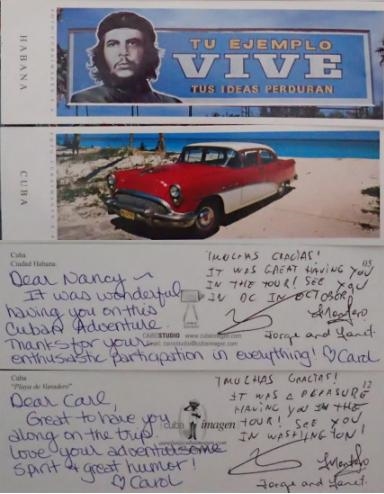 HABANA
TU EJEMPLO
VIVE
TUS IDEAS PERDURAN
CUBA
Cuba
Ciudad Habana
05
Dear Nancy ~
It was wonderful
having you on this
Cuban Adventure.
Thanks for your
enthusiastic participation in everything! ♡ Carol
¡MUCHAS GRACIAS!
IT WAS GREAT HAVING YOU
IN THE TOUR! SEE YOU
IN DC IN OCTOBER!
Jorge and Janet.
CAIROSTUDIO
Cuba
"Playa de Varadero"
12
Dear Carl,
Great to have you
along on the trip.
Love your adventuresome
spirit & great humor!
♡ Carol
cuba imagen
¡MUCHAS GRACIAS!
IT WAS A PLEASURE
HAVING YOU IN THE
TOUR! SEE YOU
IN WASHINGTON!
Jorge and Janet.